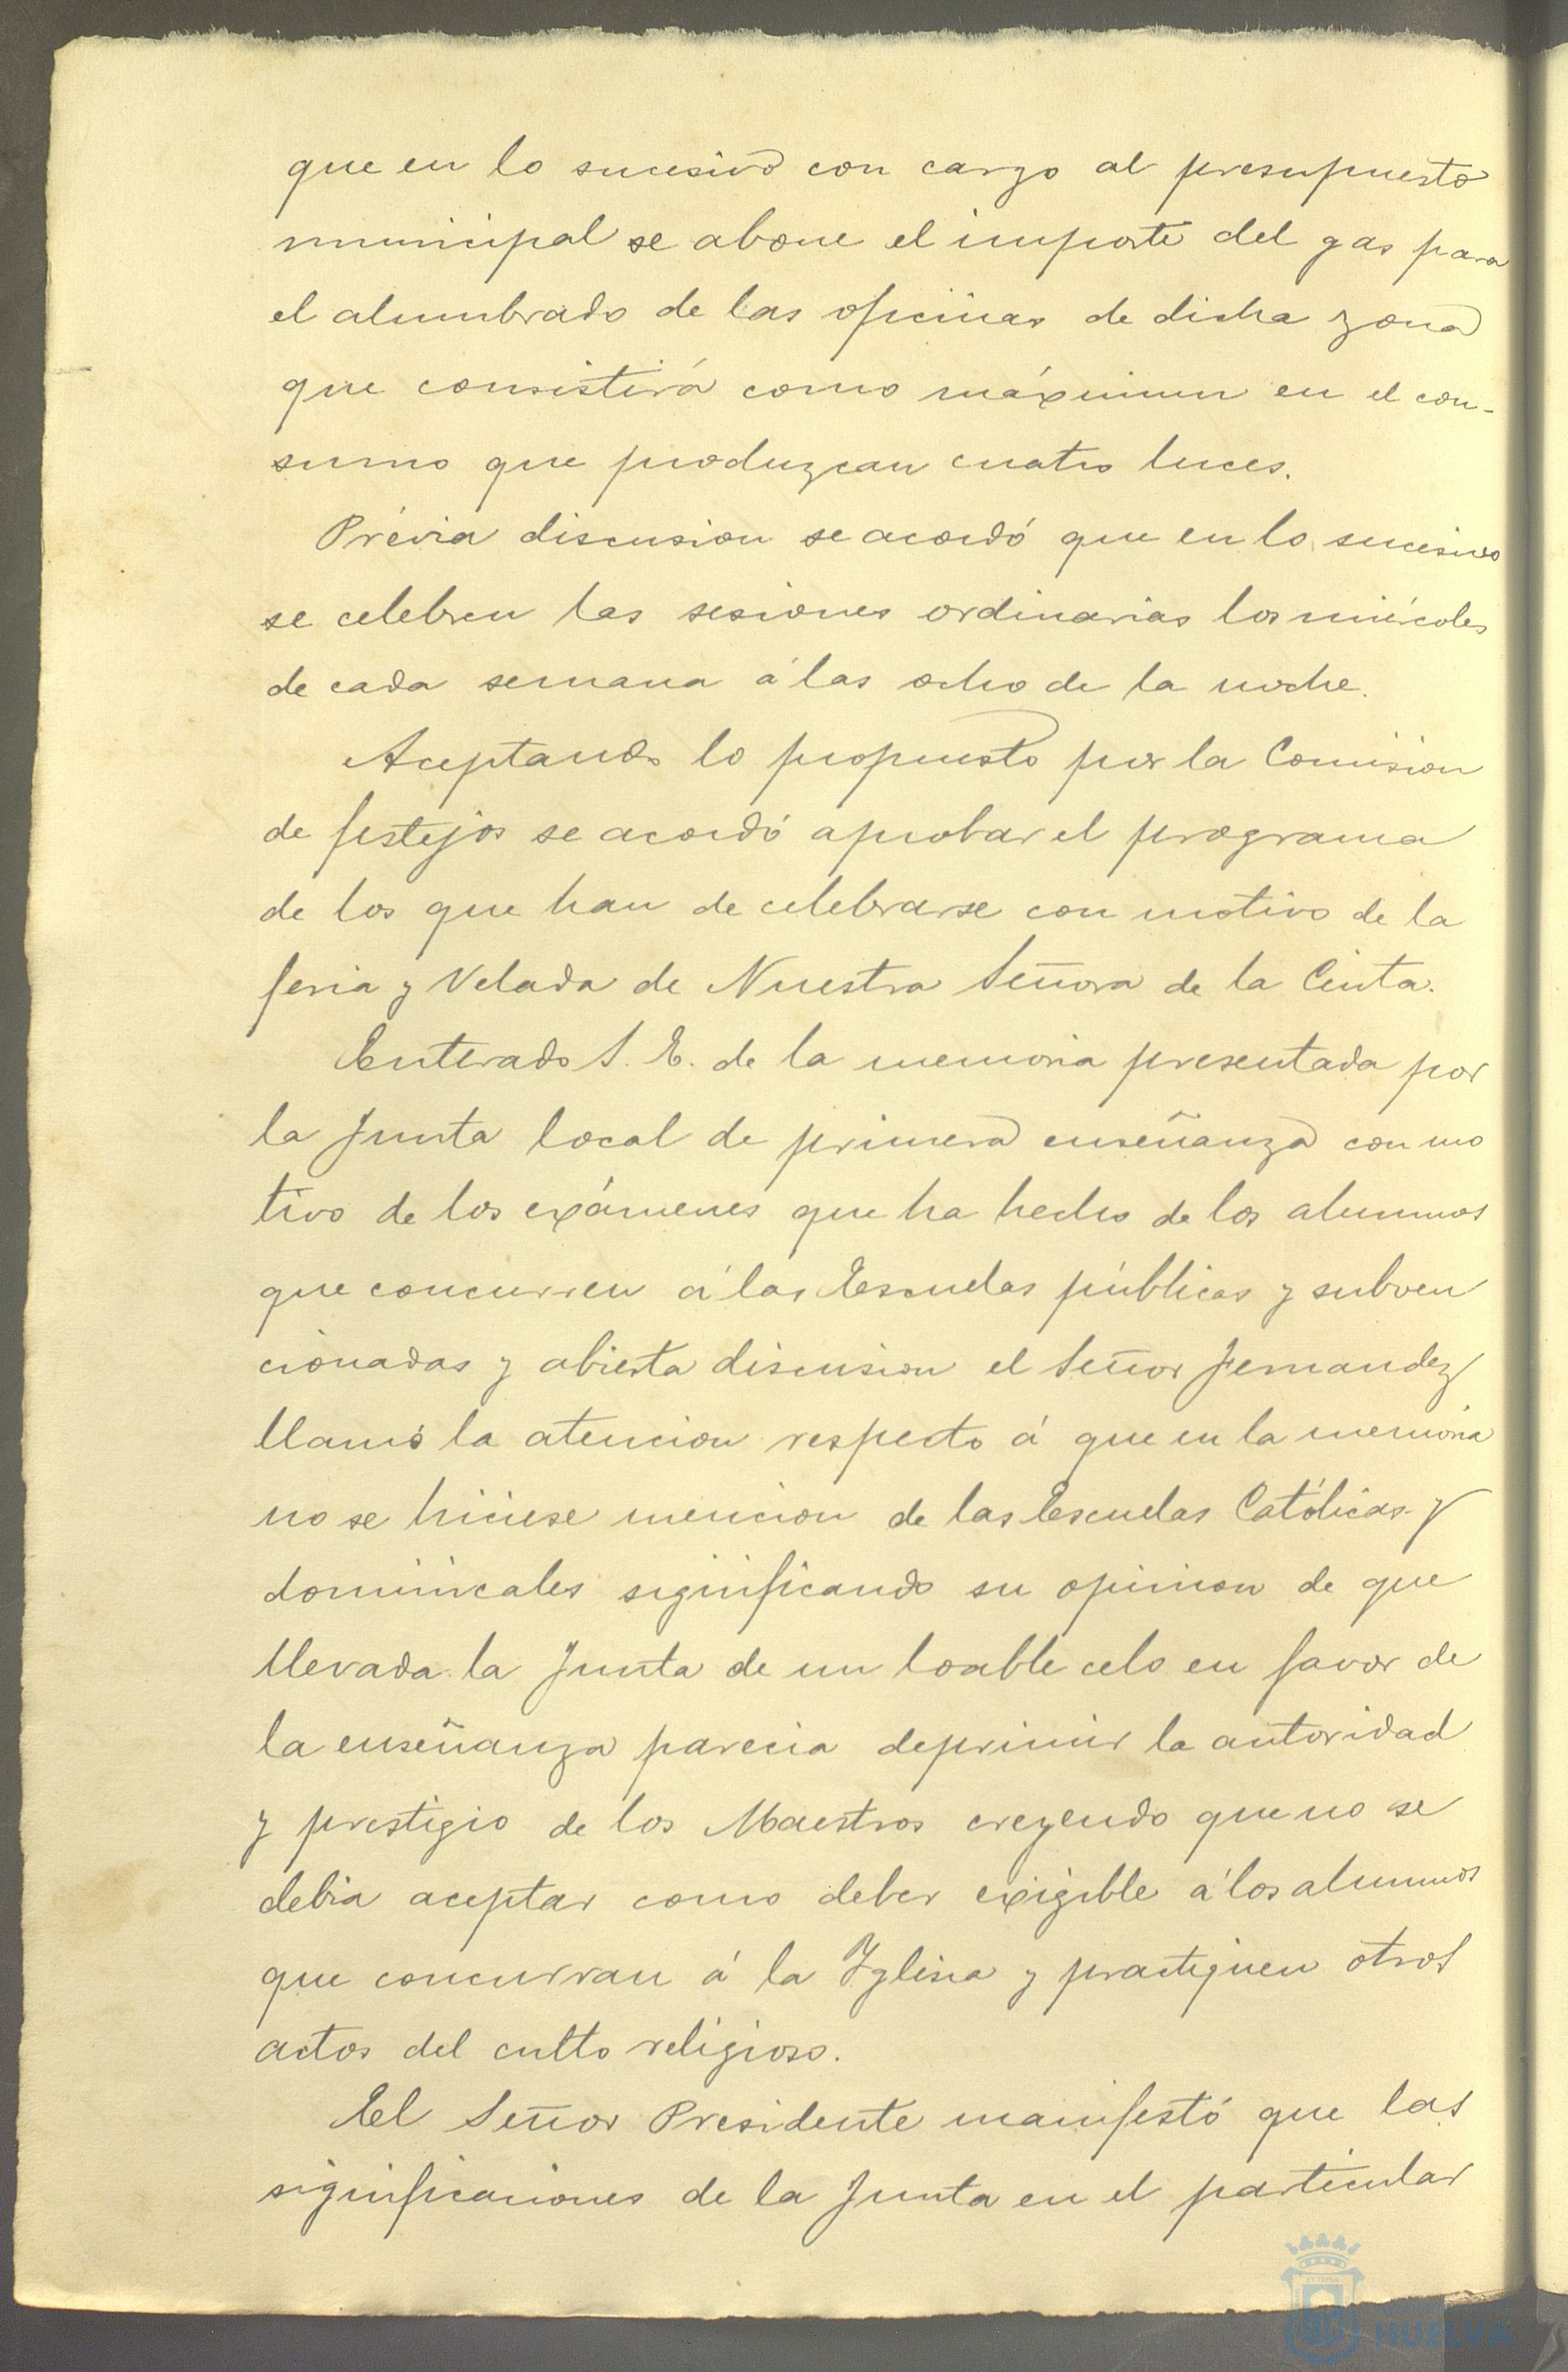 que en lo sucesivo con cargo al presupuesto
municipal se abone el importe del gas para
el alumbrado de las oficinas de dicha zona
que consistirá como máximun en el con-
sumo que produzcan cuatro luces.
Prévia discusion se acordó que en lo sucesivo
se celebren las sesiones ordinarias los miércoles
de cada semana á las ocho de la noche.
Aceptando lo propuesto por la Comision
de festejos se acordó aprobar el programa
de los que han de celebrarse con motivo de la
feria y Velada de Nuestra Señora de la Cinta.
Enterado S. E. de la memoria presentada por
la Junta local de primera enseñanza con mo
tivo de los exámenes que ha hecho de los alumnos
que concurren á las Escuelas públicas y subven
cionadas y abierta discusion el Señor Fernandez
llamó la atencion respecto á que en la memoria
no se hiciese mencion de las Escuelas Católicas y
dominicales significando su opinion de que
llevada la Junta de un loable celo en favor de
la enseñanza parecia deprimir la autoridad
y prestigio de los Maestros creyendo que no se
debia aceptar como deber exigible á los alumnos
que concurran á la Iglesia y practiquen otros
actos del culto religioso.
El Señor Presidente manifestó que las
significaciones de la Junta en el particular
HUELVA